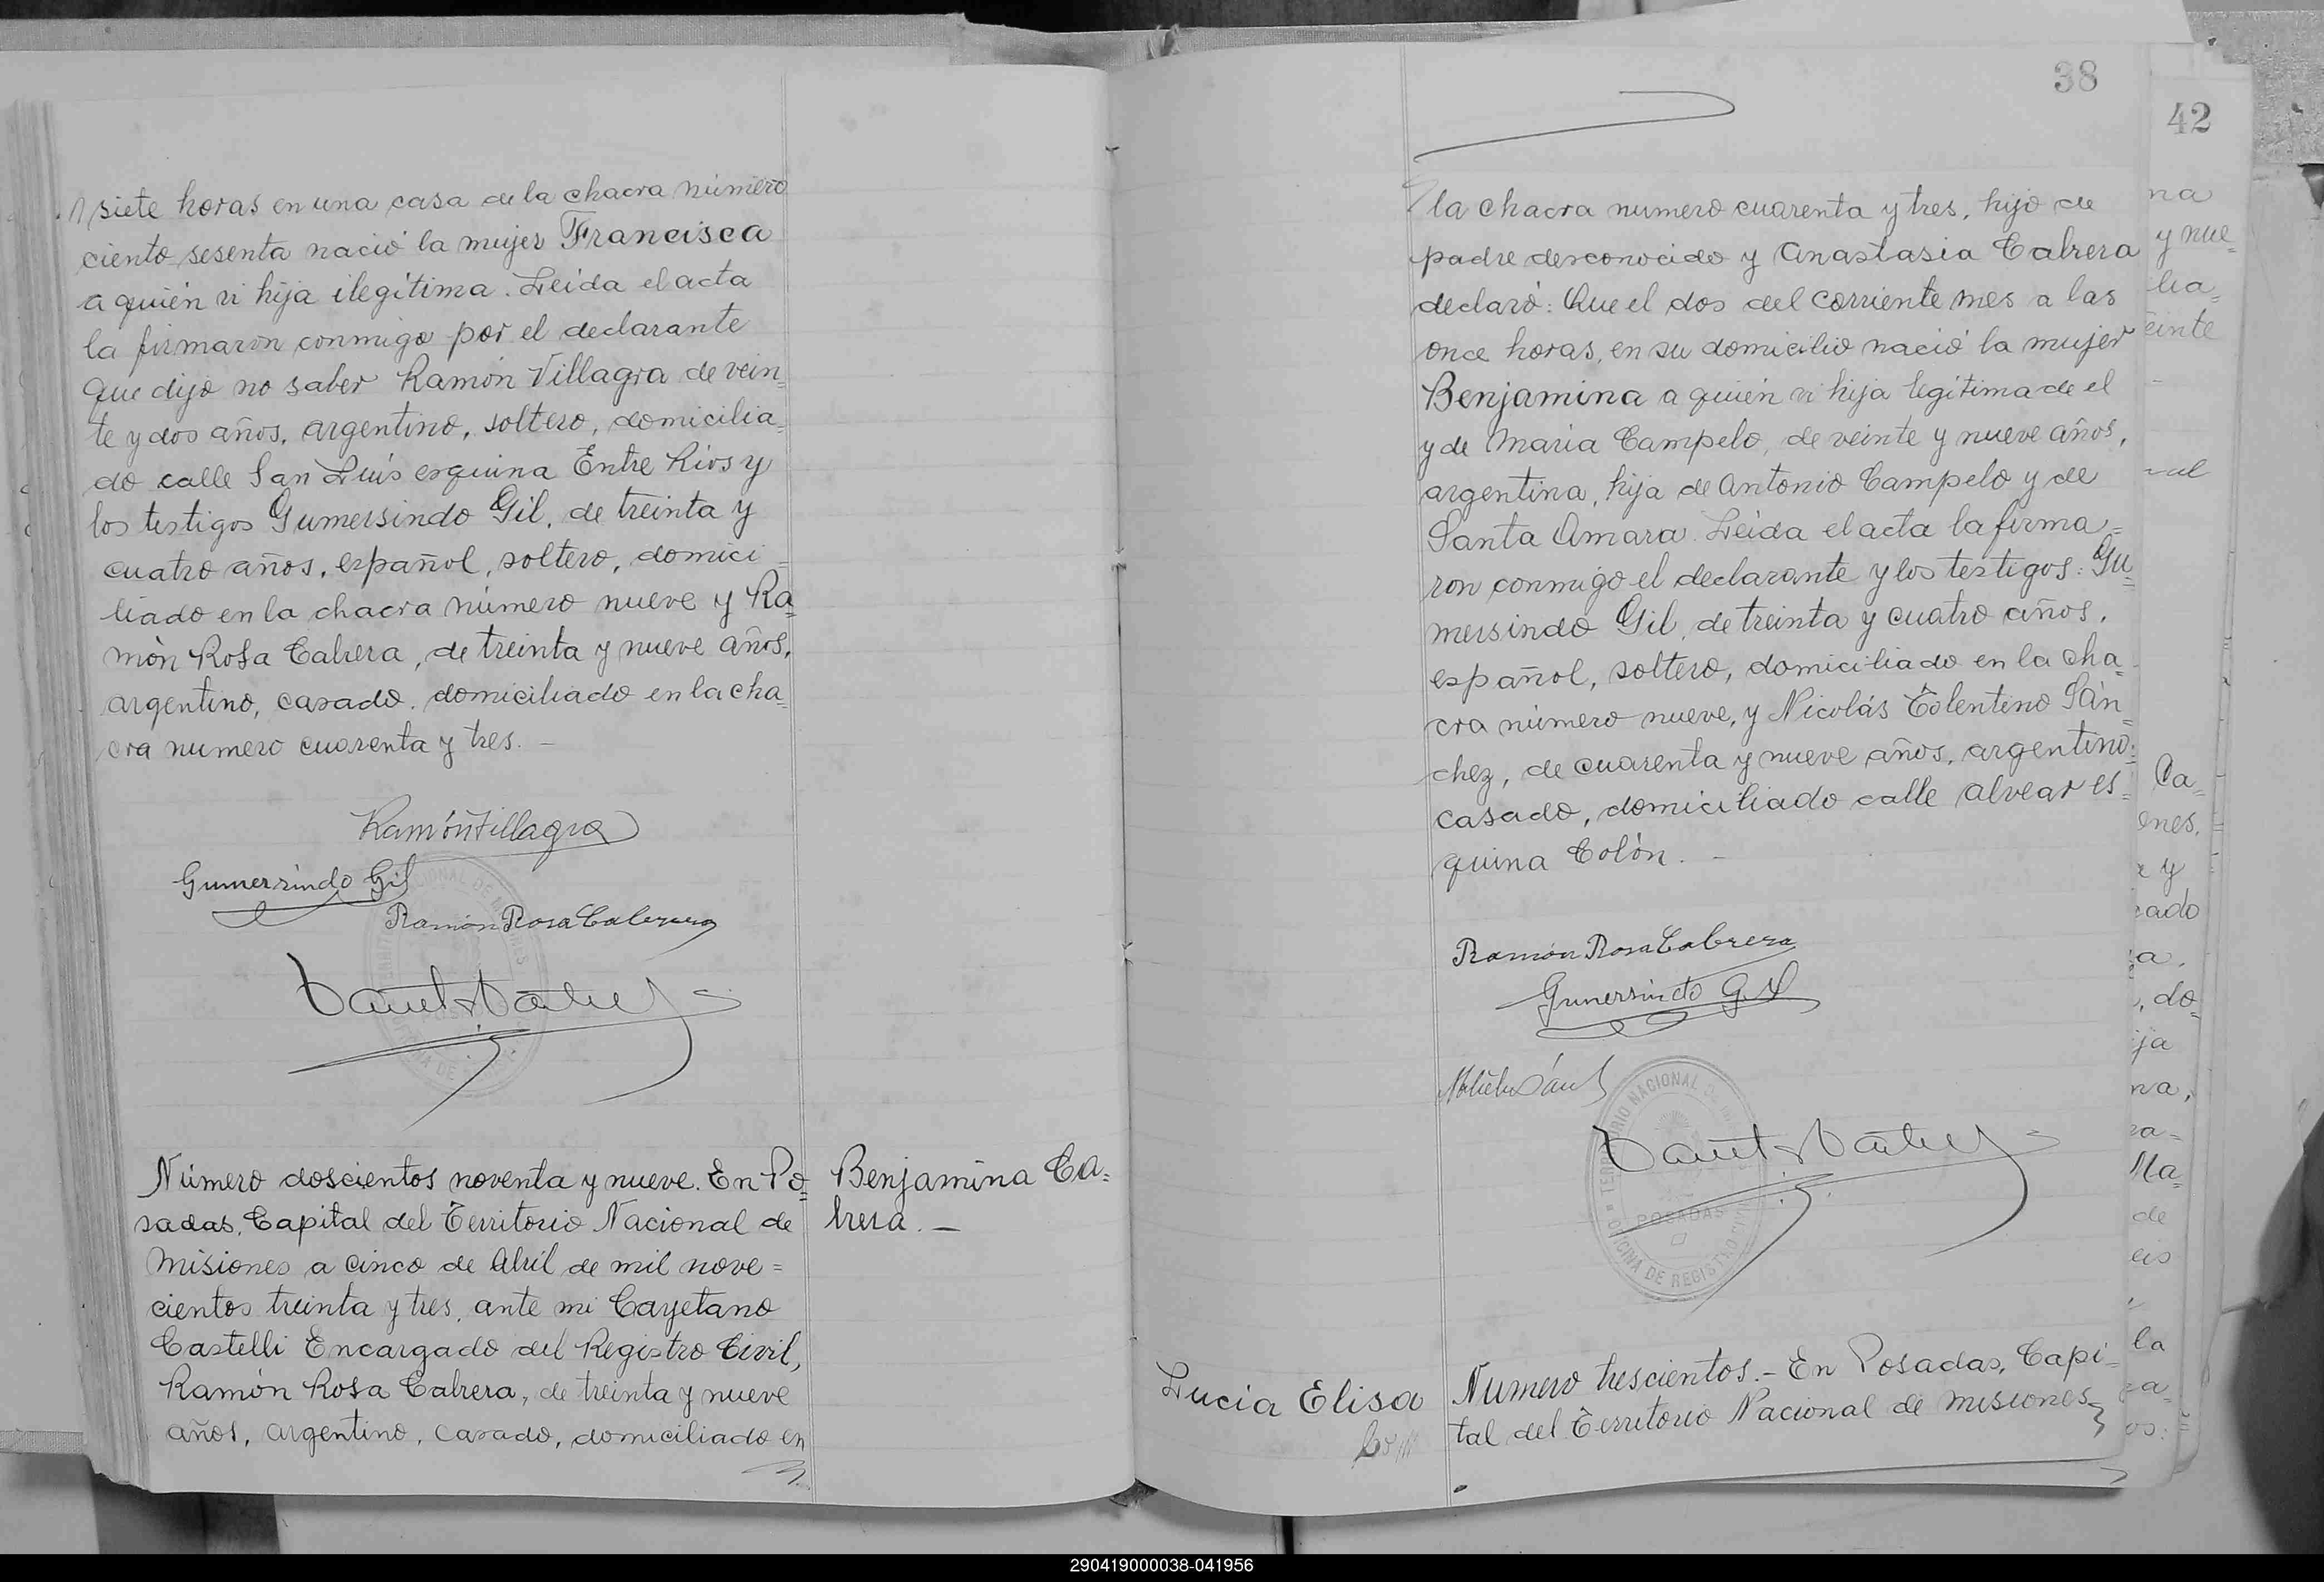 siete horas en una casa de la chacra número
ciento sesenta nació la mujer Francisca
a quién vi hija ilegítima. Leida el acta
la firmaron conmigo por el declarante
que dijo no saber Ramón Villagra de vein=
te y dos años, argentino, soltero, domicilia=
do calle San Luis esquina Entre Rios y
los testigos Gumersindo Gil, de treinta y
cuatro años, español, soltero, domici=
liado en la chacra número nueve y Ra=
món Rosa Cabrera, de treinta y nueve años,
argentino, casado, domiciliado en la cha=
cra numero cuarenta y tres. —
Ramón Villagra
Gumersindo Gil
Ramón Rosa Cabrera
Número doscientos noventa y nueve. En Po=
sadas, Capital del Territorio Nacional de
Misiones a cinco de Abril de mil nove=
cientos treinta y tres, ante mi Cayetano
Castelli Encargado del Registro Civil,
Ramón Rosa Cabrera, de treinta y nueve
años, argentino, casado, domiciliado en
Benjamina Ca=
brera. —
38
la chacra numero cuarenta y tres, hijo de
padre desconocido y Anastasia Cabrera
declaró: Que el dos del corriente mes a las
once horas, en su domicilio nació la mujer
Benjamina a quién vi hija legítima de el
y de Maria Campelo, de veinte y nueve años,
argentina, hija de Antonio Campelo y de
Santa Amara. Leida el acta la firma=
ron conmigo el declarante y los testigos: Gu=
mersindo Gil, de treinta y cuatro años,
español, soltero, domiciliado en la cha=
cra número nueve, y Nicolás Tolentino Sán=
chez, de cuarenta y nueve años, argentino,
casado, domiciliado calle Alvear es=
quina Colón. —
Ramón Rosa Cabrera
Gumersindo Gil
TERRITORIO NACIONAL DE
POSADAS
OFICINA DE REGISTRO CIVIL
Lucia Elisa
Numero trescientos. - En Posadas, Capi=
tal del Territorio Nacional de Misiones
42
na
y nue=
lia=
einte
al
Ca=
ones,
y
cado
a,
, do=
ija
na,
ra=
Ma=
de
eis
la
os:
290419000038-041956